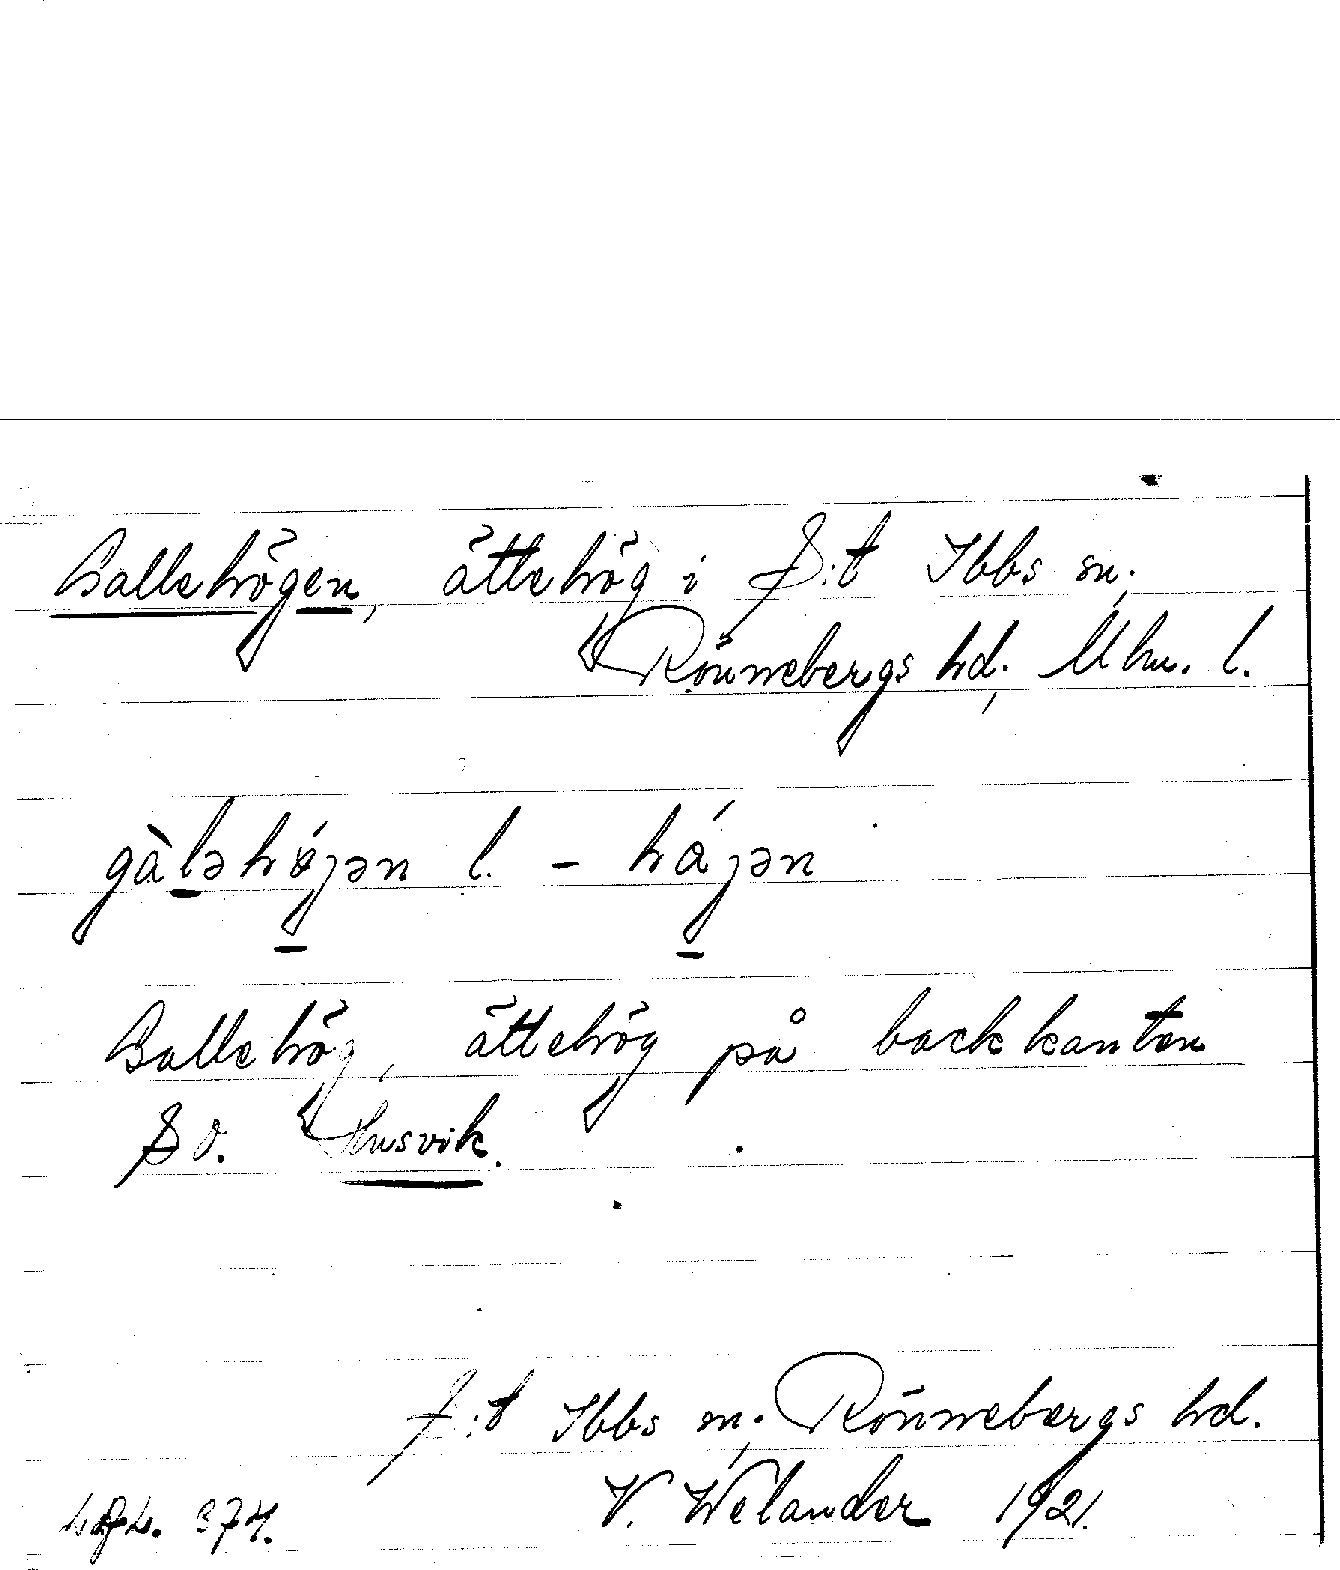 Gallehögen, ättehög i S:t Ibbs sn.
Rönnebergs hd, Mhm. l.
gàləhójən l. - hájən
Gallehög, ättehög på backkanten
SO. Husvik.
S:t Ibbs sn. Rönnebergs hd.
V. Welander 1921.